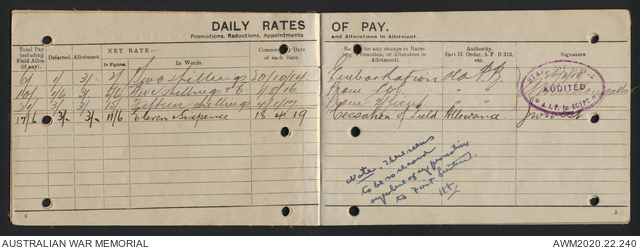 DAILY RATES OF PAY.
Promotions, Reductions, Appointments and Alterations in Allotment.
Total Pay including Field Allce. (if any). Deferred. Allotment. NET RATE:— In Figures. In Words. Commencing Date of each Rate. Reason for any change in Rates of Pay, Promotion, or Alteration in Allotment). Authority, Part II. Order, A. F. B 213, etc. Signature
6/ 1/ 3/- 2/ Two shillings 20/10/14 Embarkation
10/ 1/6 3/- 5/6 Five shillings + 6 4/8/16 From
21/ 3/ 3/ 15/ Fifteen shillings From
17/6 3/- 3/- 11/6 Eleven & Sixpence 18.4.19 Cessation of Field Allowance
AUDITED
A.I.F. in EGYPT
Note. There seems
to be no record
anywhere of any promotion
to First Lieutenant.
2
3
AUSTRALIAN WAR MEMORIAL
AWM2020.22.240